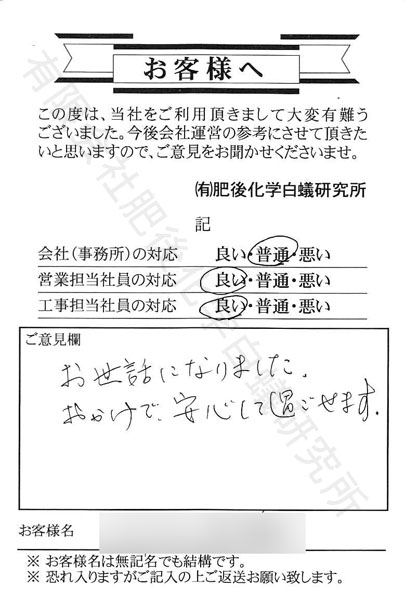 お客様へ
この度は、当社をご利用頂きまして大変有難う
ございました。今後会社運営の参考にさせて頂きた
いと思いますので、ご意見をお聞かせくださいませ。
㈲肥後化学白蟻研究所
記
会社(事務所)の対応 良い・普通・悪い
営業担当社員の対応 良い・普通・悪い
工事担当社員の対応 良い・普通・悪い
ご意見欄
お世話になりました。
おかげで、安心して過ごせます。
お客様名
※ お客様名は無記名でも結構です。
※ 恐れ入りますがご記入の上ご返送お願い致します。
有限会社肥後化学白蟻研究所